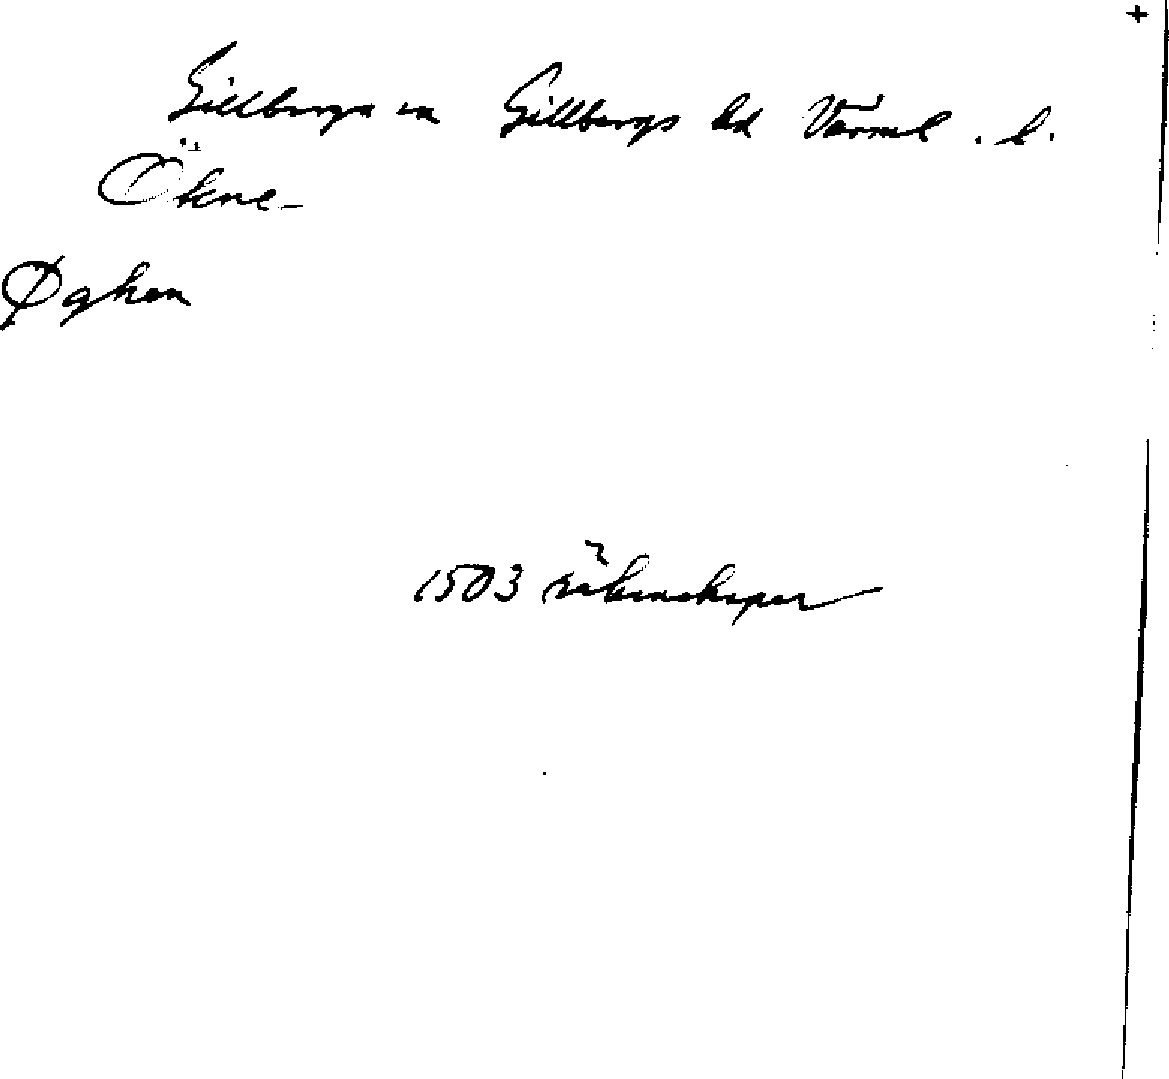 +
Gillberga sn Gillbergs hd Värml. l.
Ökne-
Øghen
1503 räkenskaper